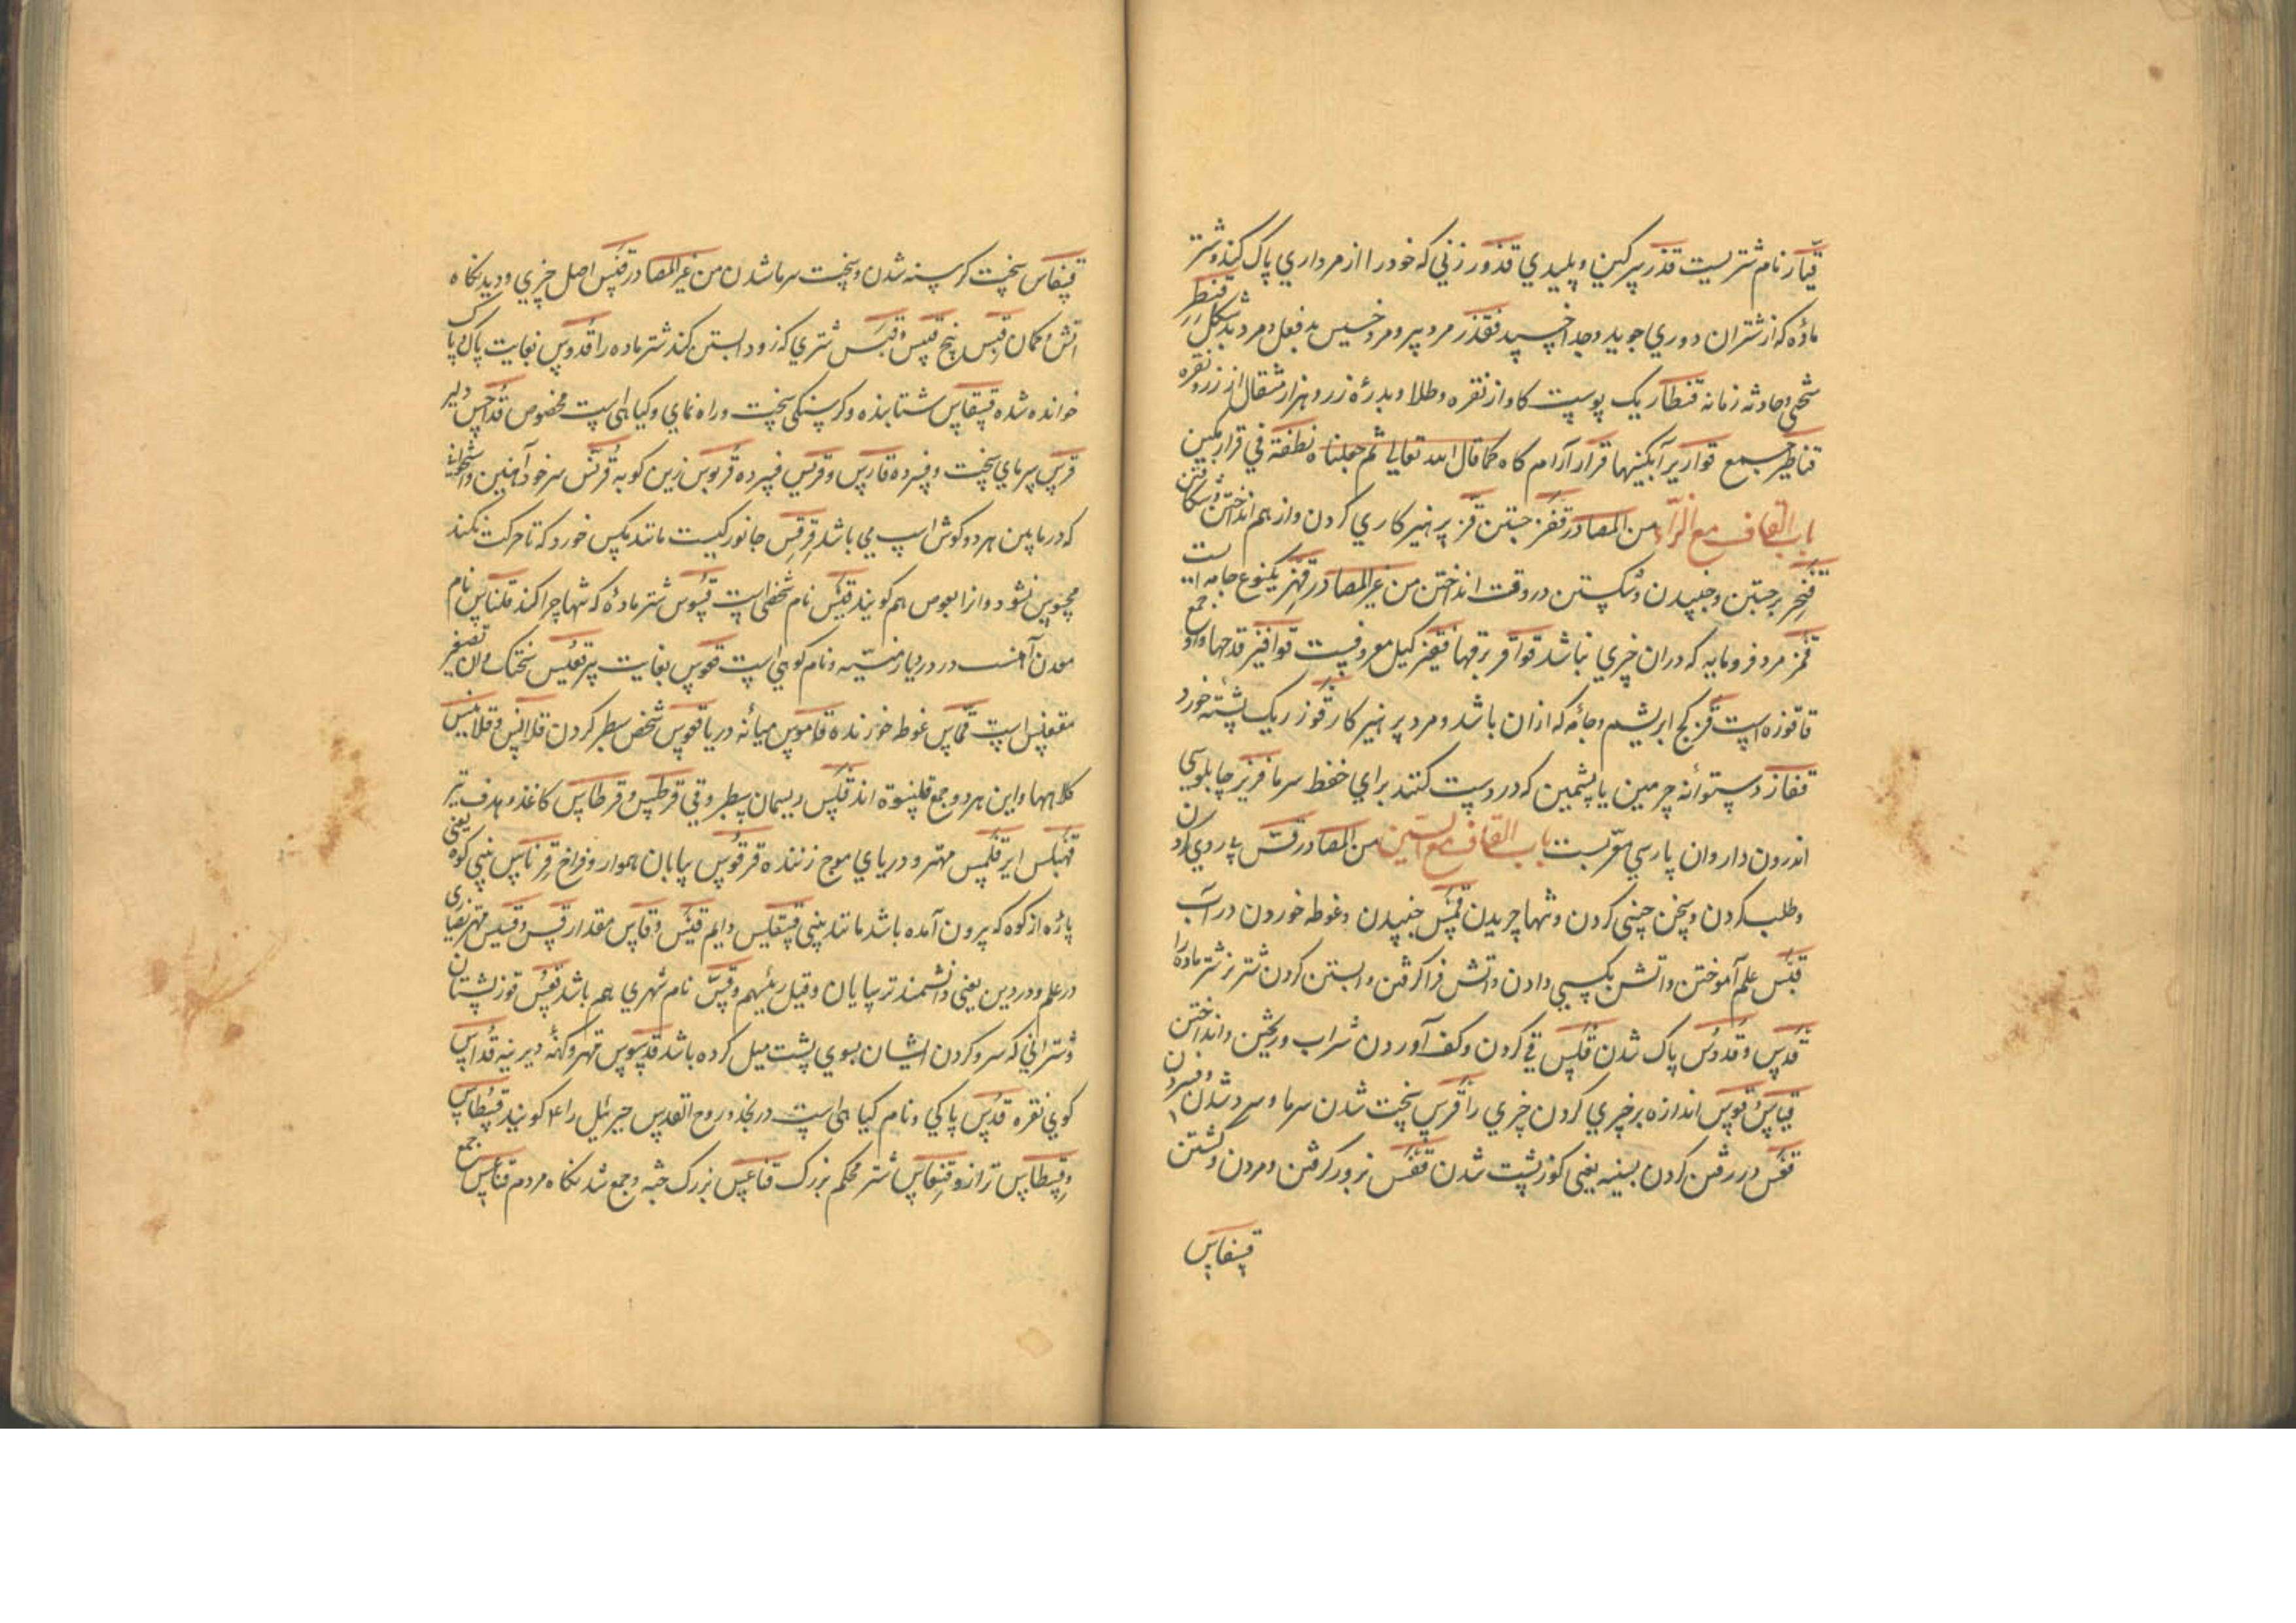 قیار نام شتریست قذر پرکین و پلیدی قذور زنی که خود را از مرداری پاک کند و شتر
ماده که از شتران دوری جوید و جدا خسپد قنقذر مرد پیر و مرد خسیس بد فعل و مرد بد شکل قنطر
سختی و حادثه زمانه قنطار یک پوست کاو از نقره و طلا و بدره زر و هزار مثقال از زر و نقره
قناطیر جمع قواریر آبکینها قرار آرام کاه کما قال الله تعالی ثم جعلناه نطفة فی قرار مکین
باب القاف مع الزاء من المصادر قفز جستن قز پرهیز کاری کردن و از هم انداختن و شکافتن
قحز برجستن و جنبیدن و شکستن در وقت انداختن من غیر المصادر قهز یکنوع جامه است
قمز مرد فرومایه که دران خیری نباشد قوافز برقها قفیز کیل معروفست قواقیز قدحها واو جمع
قاقوزه است قز کج ابریشم و جامه که ازان باشد و مرد پرهیز کار قوز ریک پشته خورد
قفاز دستوانه چرمین یا پشمین که در دست کنند برای حفظ سرما قربز چابلوسی
اندرون دار و ان پارسی معربست باب القاف مع السین من المصادر قس پی روی کردن
و طلب کردن و سخن چینی کردن و تنها چریدن قمس جنبیدن و غوطه خوردن در آب
قبس علم آموختن و آتش بکسی دادن و آتش فرا کرفتن و آبستن کردن شتر نر شتر ماده را
قدس و قدوس پاک شدن قلس قی کردن و کف آوردن شراب و ریختن و انداختن
قیاس و قوس اندازه بر چیزی کردن چیزی را قرس سخت شدن سرما و سرد شدن و فسردن
قعس در رفتن کردن بسینه یعنی کوز پشت شدن قفس بزور کرفتن و مردن و کشتن
قسفاس
قسفاس سخت کرسنه شدن و سخت سرما شدن من غیر المصادر قنس اصل چیزی و دیدنکاه
آتش و کمان قبس بیخ قبیس و قبس شتری که زود آبستن کند شتر ماده را قدوس بغایت پاک و پاک
خوانده شده قسقاس شتابنده و کرسنکی سخت و راه نمای و کیاهی است مخصوص قداحس دلیر
قرس سرمای سخت و فسرده قارس و قریس فسرده قربوس زین کوبه قونس سر خود آهنین و استخوان
که در مابین هر دو کوش اسپ می باشد قرقس جانورکیست مانند مکس خورد که تا حرکت نکند
محسوس نشود و از ابعوض هم کویند قیس نام شخصی است قسوس شتر ماده که تنها چرا کند قلناس نام
معدن آهنست در دیار منیه و نام کوهی است قعوس بغایت پیر قعیس خنک و ان تصغیر
مقعنسس است قماس غوطه خورنده قاموس میانه دریا قعوس شخص سطبر کردن قلانس و قلانیس
کلاهها و این هر دو جمع قلنسوة اند قلس ریسمان سطبر و قی قرطس و قرطاس کاغذ و هدف تیر
قهبلس ایر قلمس مهتر و دریای موج زننده قرقوس بیابان هموار و فراخ قرناس بینی کوه یعنی
پاره از کوه که بیرون آمده باشد مانند بینی قسقلیس دایم قیس و قاس مقدار قس و قسیس مهتر نصاری
در علم و در دین یعنی دانشمند ترسایان و قیل رئیسهم و قس نام شهری هم باشد قعس قوز پشتان
و شترانی که سر و کردن ایشان بسوی پشت میل کرده باشد قدموس مهتر و کهنه دیرینه قداس
کوی نقره قدس پاکی و نام کیاهی است در نجد و روح القدس جبرئیل را ع کویند قسطاس
و قسطاس ترازو قنعاس شتر محکم بزرک قناعس بزرک جثه و جمع شدنکاه مردم قناعیس جمع